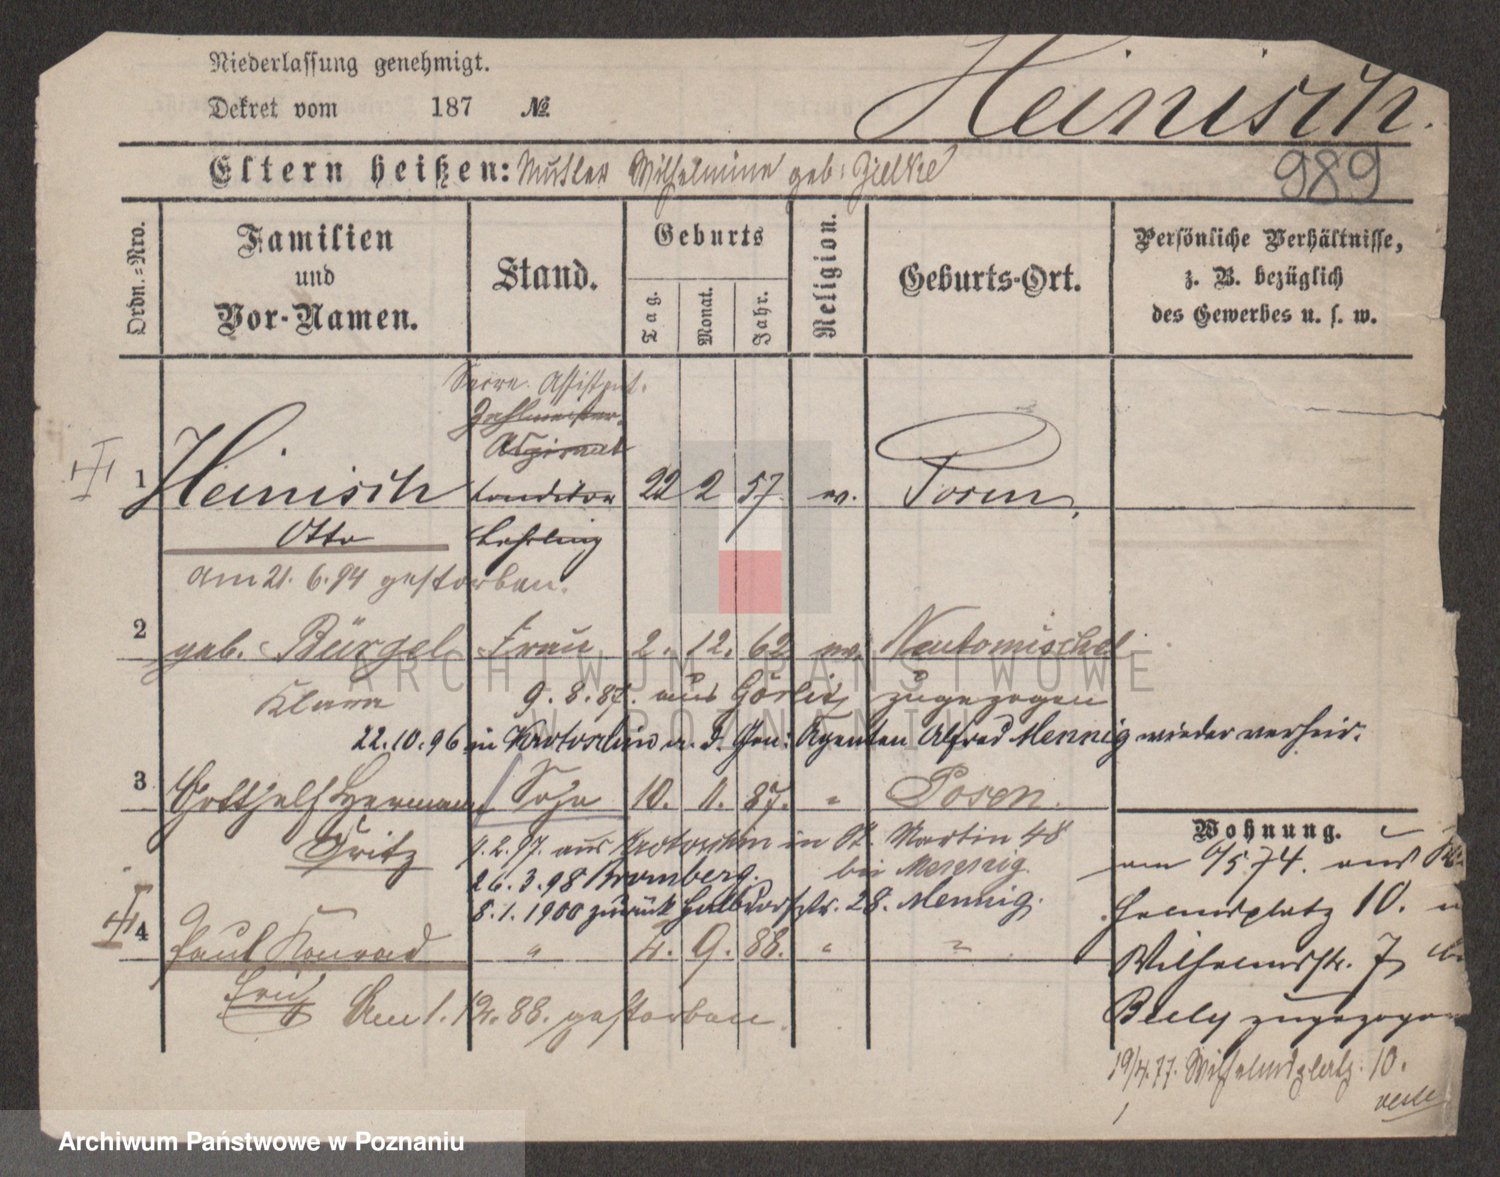 Niederlassung genehmigt.
Dekret vom 187 №
Heinisch.
989
Eltern heißen: Mutter Wilhelmine geb: Zielke
Ordn.-Nro.
Familien und Vor-Namen.
Stand.
Geburts
Tag.
Monat.
Jahr.
Religion.
Geburts-Ort.
Persönliche Verhältnisse,
z. B. bezüglich
des Gewerbes u. s. w.
Assistent.
Zahlmeister
Aspirant
1 Heinisch Conditor 22 2 57 ev. Posen
Otto Lehrling
am 21. 6. 94 gestorben.
2 geb. Bürgel Frau 2. 12. 62 ev. Neutomischel
Klara 9. 8. 87. aus Görlitz zugezogen
22.10.96 in Krotoschin m. d. Gen: Agenten Alfred Mennig wieder verheir.
3 Gotthelf Hermann Sohn 10. 11. 87. " Posen.
Fritz 4. 2. 97. aus Krotoschin in St. Martin 48
bei Mennig.
26. 3. 98 Bromberg.
8. 1. 1900 zurück Halbdorfstr. 28. Mennig.
4 Paul Konrad " 4. 9. 88. " "
Erich Am 1. 12. 88. gestorben.
Wohnung.
am 9/5 74. aus
10.
Wilhelmstr. 7
Beely zugezogen
19/4.77. Wilhelmsplatz. 10.
verte
ARCHIWUM PAŃSTWOWE
W POZNANIU
Archiwum Państwowe w Poznaniu